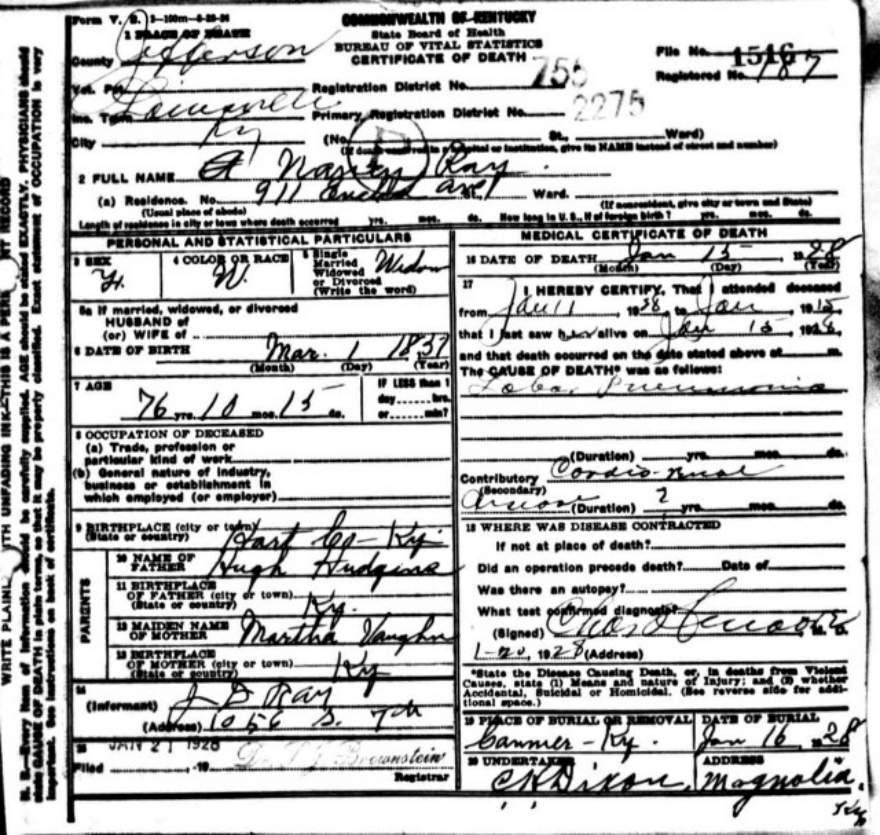 Form V. S. 1-100m-8-25-26
COMMONWEALTH OF KENTUCKY
State Board of Health
BUREAU OF VITAL STATISTICS
CERTIFICATE OF DEATH
1 PLACE OF DEATH
County Jefferson
File No. 1516
Registered No. 187
Vot. Pct.
Registration District No. 755
Inc. Town Louisville
Primary Registration District No. 2275
City Ky
(No. St., Ward)
(If death occurred in a hospital or institution, give its NAME instead of street and number)
2 FULL NAME Nancy Ray
(a) Residence. No. 911 Ave St. Ward.
(Usual place of abode) (If nonresident, give city or town and State)
Length of residence in city or town where death occurred yrs. mos. ds. How long in U. S., if of foreign birth? yrs. mos. ds.
PERSONAL AND STATISTICAL PARTICULARS
3 SEX
4 COLOR OR RACE W.
5 Single
Married
Widowed
or Divorced
(Write the word)
Widow
5a If married, widowed, or divorced
HUSBAND of
(or) WIFE of
6 DATE OF BIRTH Mar. 1 18
(Month) (Day) (Year)
7 AGE
76 yrs. 10 mos. 15 ds.
IF LESS than 1
day hrs.
or min?
8 OCCUPATION OF DECEASED
(a) Trade, profession or
particular kind of work
(b) General nature of industry,
business or establishment in
which employed (or employer)
9 BIRTHPLACE (city or town)
(State or country) Hart Co - Ky.
PARENTS
10 NAME OF
FATHER Hugh Hudgins
11 BIRTHPLACE
OF FATHER (city or town)
(State or country) Ky.
12 MAIDEN NAME
OF MOTHER Martha Vaughn
13 BIRTHPLACE
OF MOTHER (city or town)
(State or country) Ky
14
(Informant) J D Ray
(Address) 1056 S. 7th
15 JAN 21 1928
Filed , 19 Brownstein
Registrar
MEDICAL CERTIFICATE OF DEATH
16 DATE OF DEATH Jan 15, 1928
(Month) (Day) (Year)
17 I HEREBY CERTIFY, That I attended deceased
from Jan 11, 19 , to Jan , 19
that I last saw her alive on Jan 15, 1928,
and that death occurred on the date stated above at m.
The CAUSE OF DEATH* was as follows:
Lobar Pneumonia
(Duration) yrs. mos. ds.
Contributory Cardio-Renal
(Secondary)
(Duration) 2 yrs. mos. ds.
18 WHERE WAS DISEASE CONTRACTED
If not at place of death?
Did an operation precede death? Date of
Was there an autopsy?
What test confirmed diagnosis?
(Signed) M. D.
1-20, 1928 (Address)
*State the Disease Causing Death, or, in deaths from Violent
Causes, state (1) Means and nature of Injury; and (2) whether
Accidental, Suicidal or Homicidal. (See reverse side for addi-
tional space.)
19 PLACE OF BURIAL OR REMOVAL DATE OF BURIAL
Canmer - Ky. Jan 16, 1928
20 UNDERTAKER ADDRESS
C K Dixon, Magnolia.
Ky
N. B.—Every item of information should be carefully supplied. AGE should be stated EXACTLY. PHYSICIANS should
state CAUSE OF DEATH in plain terms, so that it may be properly classified. Exact statement of OCCUPATION is very
important. See instructions on back of certificate.